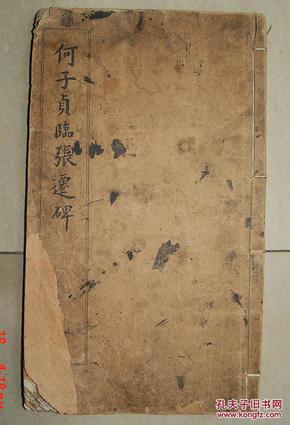 何子貞臨張遷碑
孔夫子旧书网